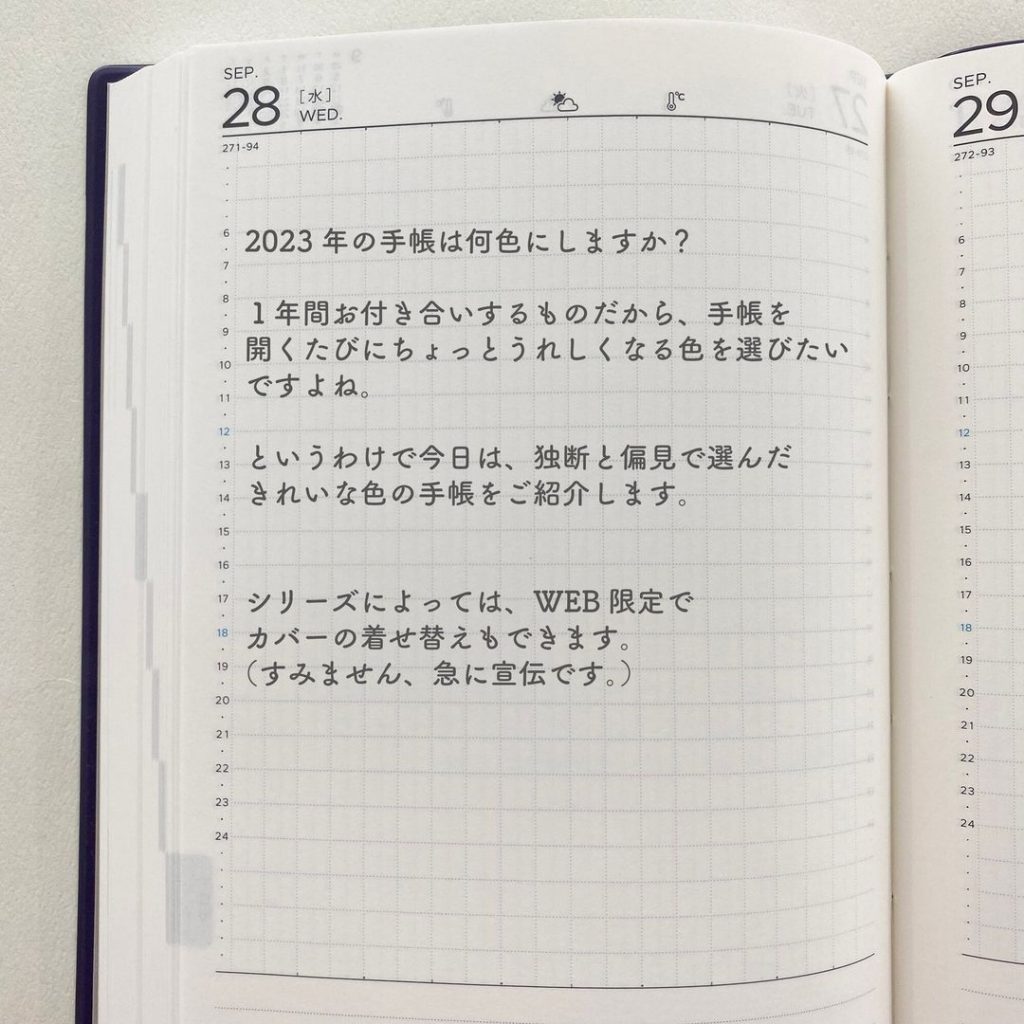 SEP.
28 [水] WED.
℃
271-94
6
7
8
9
10
11
12
13
14
15
16
17
18
19
20
21
22
23
24
2023年の手帳は何色にしますか？
１年間お付き合いするものだから、手帳を
開くたびにちょっとうれしくなる色を選びたい
ですよね。
というわけで今日は、独断と偏見で選んだ
きれいな色の手帳をご紹介します。
シリーズによっては、WEB限定で
カバーの着せ替えもできます。
（すみません、急に宣伝です。）
SEP.
29
272-93
6
7
8
9
10
11
12
13
14
15
16
17
18
19
20
21
22
23
24